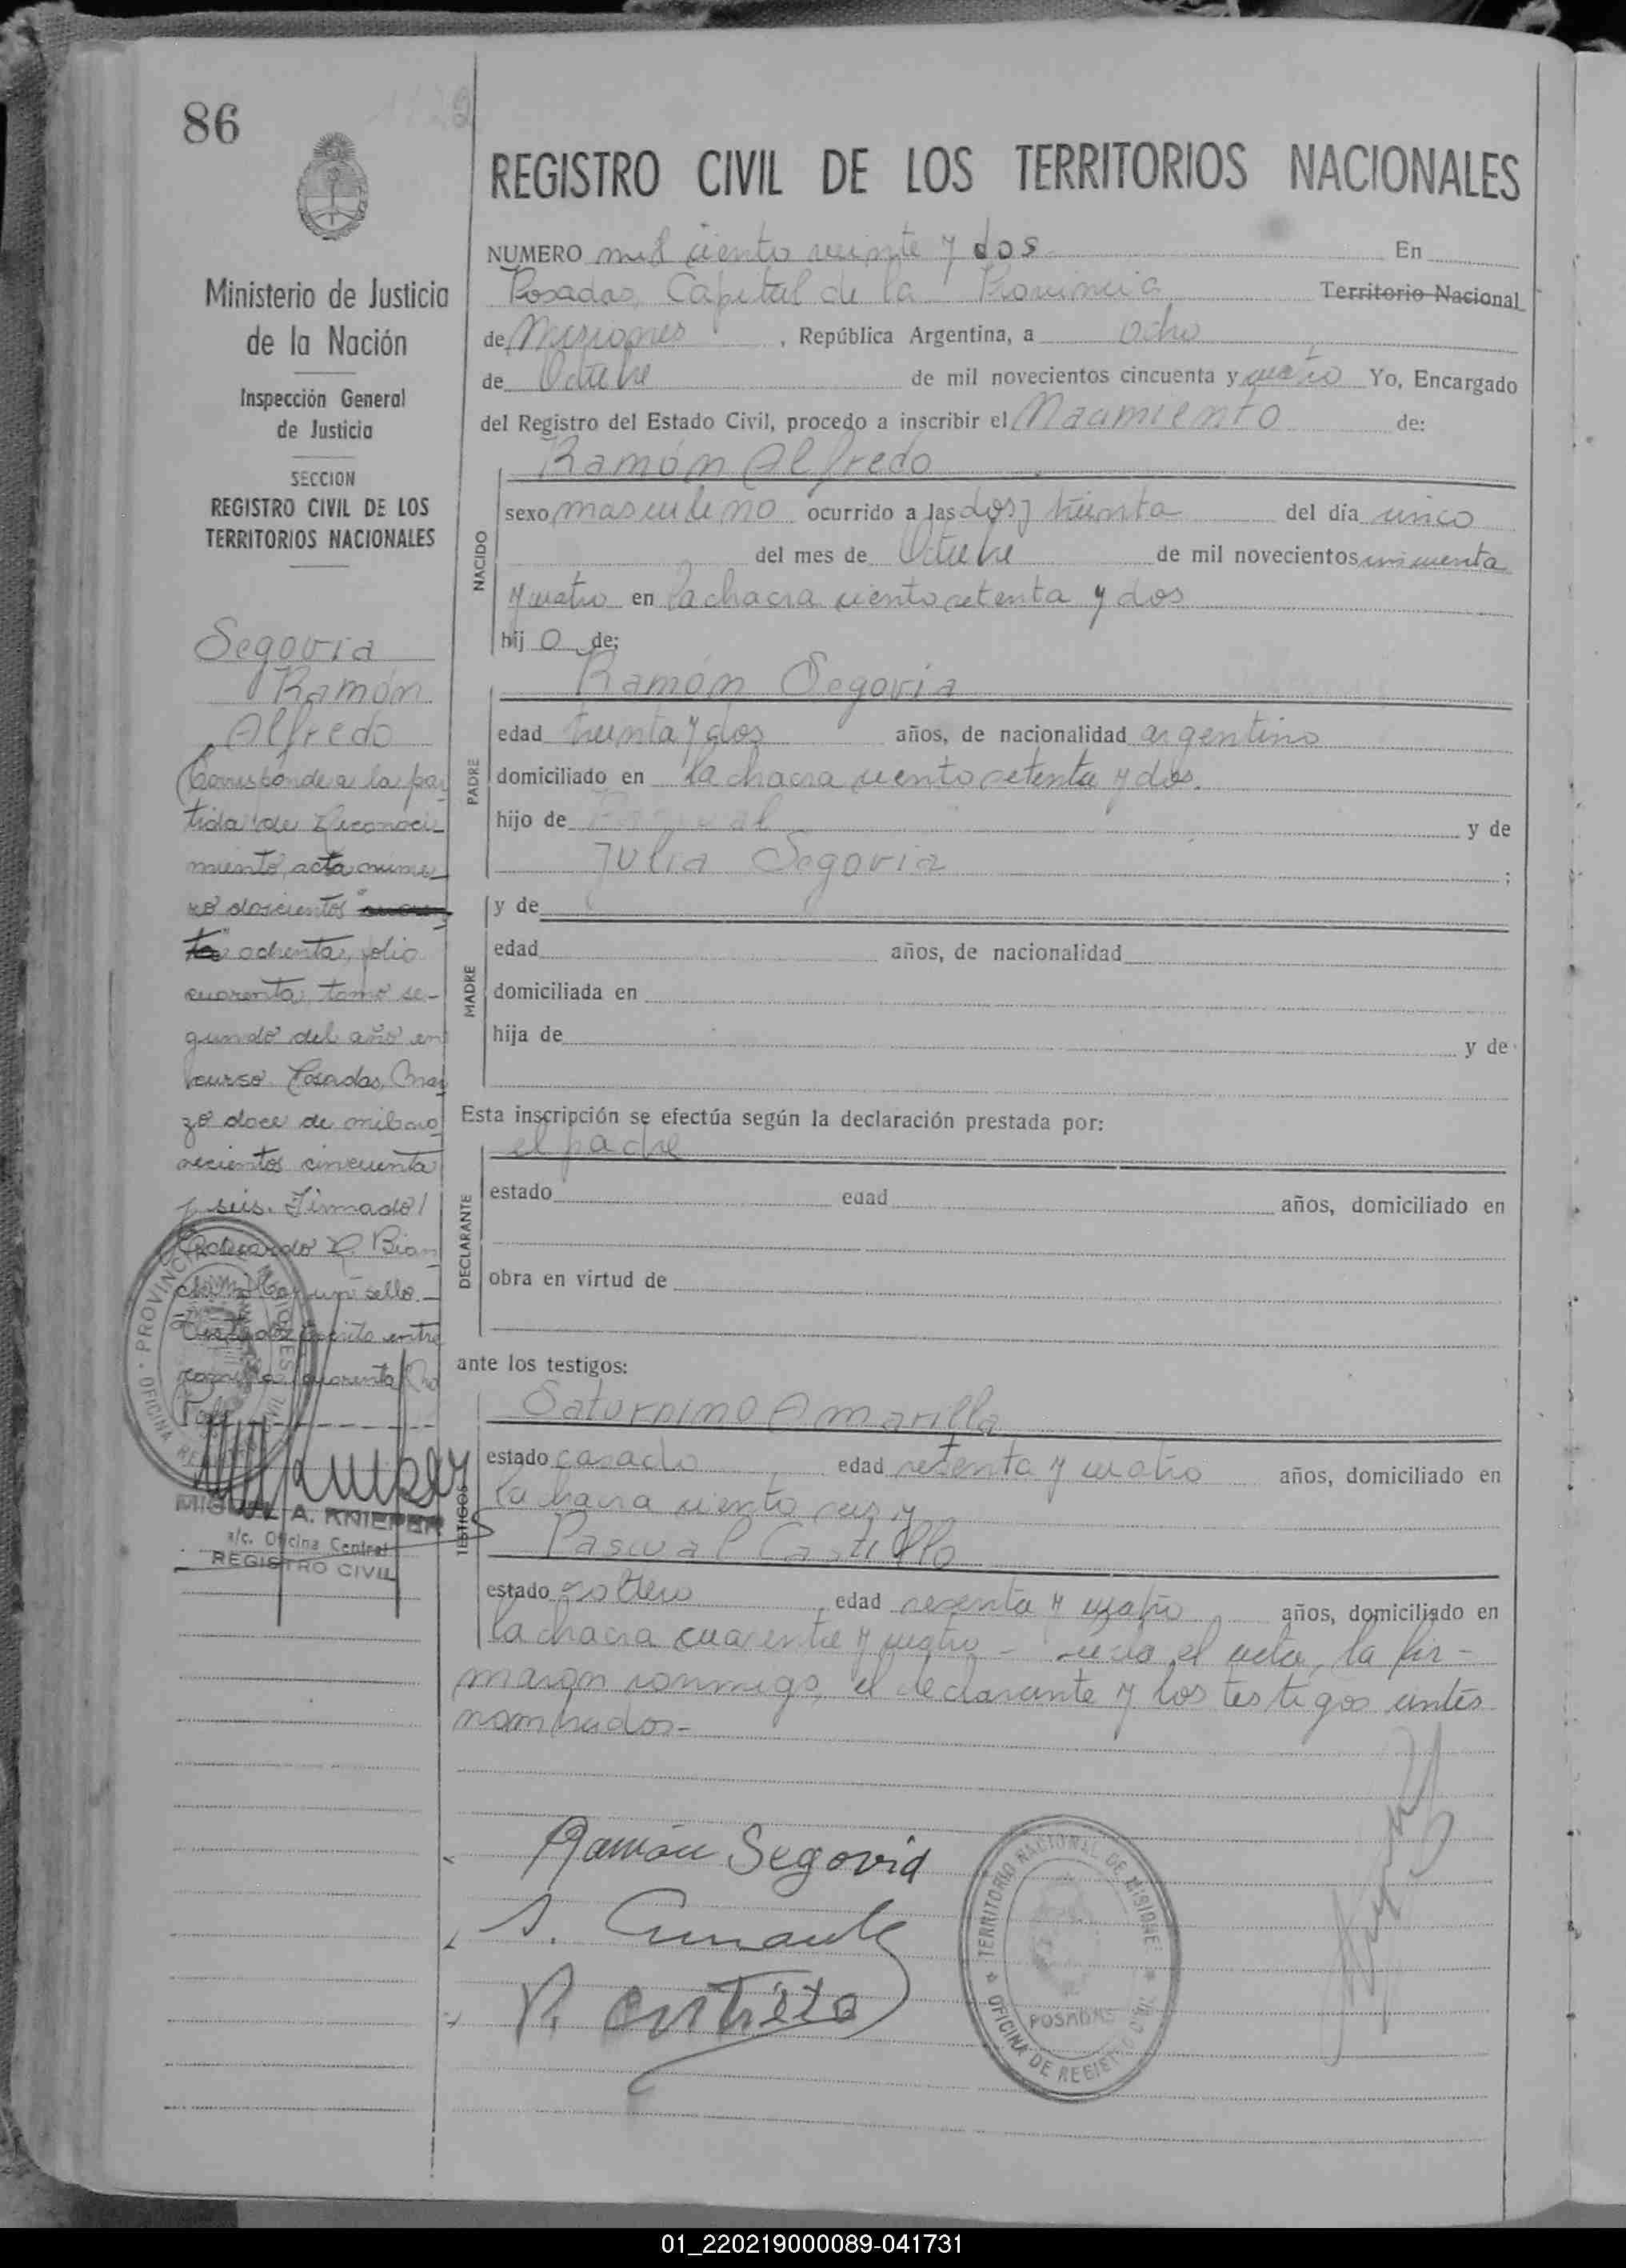 86
1122
REGISTRO CIVIL DE LOS TERRITORIOS NACIONALES
Ministerio de Justicia
de la Nación
Inspección General
de Justicia
SECCION
REGISTRO CIVIL DE LOS
TERRITORIOS NACIONALES
Segovia
Ramón
Alfredo
Corresponde a la par
tida de Reconoci-
miento, acta núme-
ro doscientos "cuaren
ta" ochenta, folio
cuarenta, tomo se-
gundo del año en
curso. Posadas, Mar
zo doce de mil no
vecientos cincuenta
y seis. Firmado/
Eduardo Bian
sello.-
entre
cuarenta
MIGUEL A. KNIEPER
a/c. Oficina Central
REGISTRO CIVIL
NUMERO mil ciento veinte y dos En
Posadas, Capital de la Provincia Territorio Nacional
de Misiones, República Argentina, a ocho
de Octubre de mil novecientos cincuenta y cuatro Yo, Encargado
del Registro del Estado Civil, procedo a inscribir el Nacimiento de:
NACIDO
Ramón Alfredo
sexo masculino ocurrido a las dos y treinta del día cinco
del mes de Octubre de mil novecientos cincuenta
y cuatro en la chacra ciento setenta y dos
hij o de:
PADRE
Ramón Segovia
edad treinta y dos años, de nacionalidad argentino
domiciliado en la chacra ciento setenta y dos.
hijo de y de
Julia Segovia ;
MADRE
y de
edad años, de nacionalidad
domiciliada en
hija de y de
Esta inscripción se efectúa según la declaración prestada por:
DECLARANTE
el padre
estado edad años, domiciliado en
obra en virtud de
ante los testigos:
TESTIGOS
Saturnino Amarilla
estado casado edad sesenta y cuatro años, domiciliado en
la chacra ciento seis y
Pascual Castillo
estado soltero edad sesenta y cuatro años, domiciliado en
la chacra cuarenta y cuatro - el acta, la fir-
maron conmigo, el declarante y los testigos antes
nombrados-
Ramón Segovia
TERRITORIO NACIONAL DE MISIONES
POSADAS
OFICINA DE REGISTRO CIVIL
01_220219000089-041731